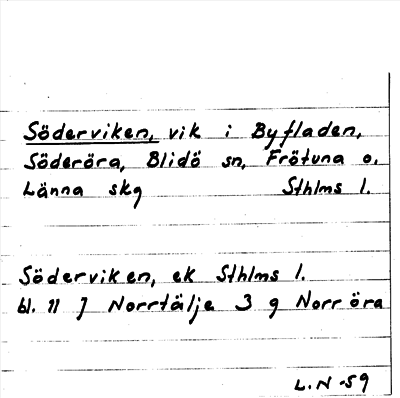 Söderviken, vik i Byfladen,
Söderöra, Blidö sn, Frötuna o.
Länna skg Sthlms l.
Söderviken, ek Sthlms l.
bl. 11 J Norrtälje 3 g Norröra
L.N -59